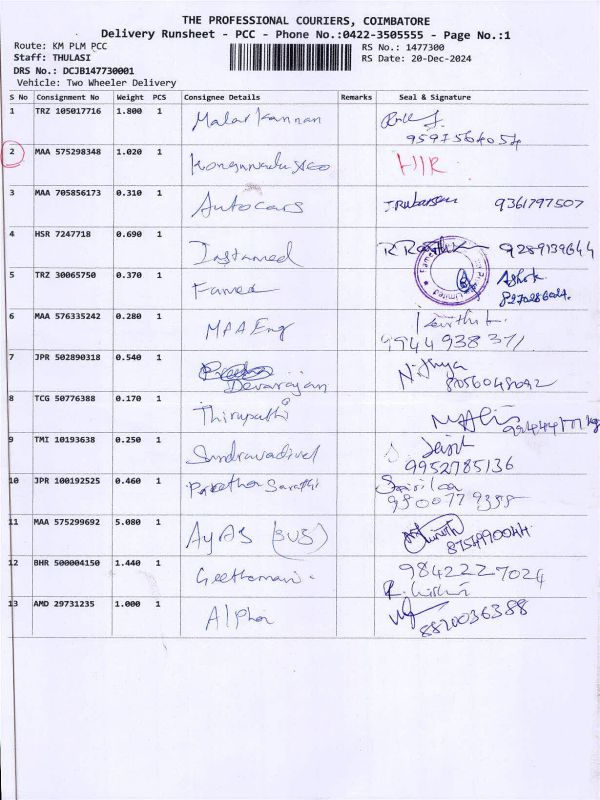 THE PROFESSIONAL COURIERS, COIMBATORE
Delivery Runsheet - PCC - Phone No.:0422-3505555 - Page No.:1
Route: KM PLM PCC
RS No.: 1477300
Staff: THULASI
RS Date: 20-Dec-2024
DRS No.: DCJB147730001
Vehicle: Two Wheeler Delivery
S No Consignment No Weight PCS Consignee Details Remarks Seal & Signature
1 TRZ 105017716 1.800 1 Malar Kannan
9597564054
2 MAA 575298348 1.020 1
3 MAA 705856173 0.310 1 Autocars 9361797507
4 HSR 7247718 0.690 1 Instamed 9289139644
5 TRZ 30065750 0.370 1 Famex Limited Ashok
6 MAA 576335242 0.280 1 MPA Eng
9944938371
7 JPR 502890318 0.540 1 Devarajan Nithya
8056048092
8 TCG 50776388 0.170 1 Thirupathi
9 TMI 10193638 0.250 1 Sundravadivel
9952785136
10 JPR 100192525 0.460 1 Parthasarathi
11 MAA 575299692 5.080 1 AyAS (SUS)
8754990044
12 BHR 500004150 1.440 1 Geethamani 9842227024
13 AMD 29731235 1.000 1 Alpha
8820036388